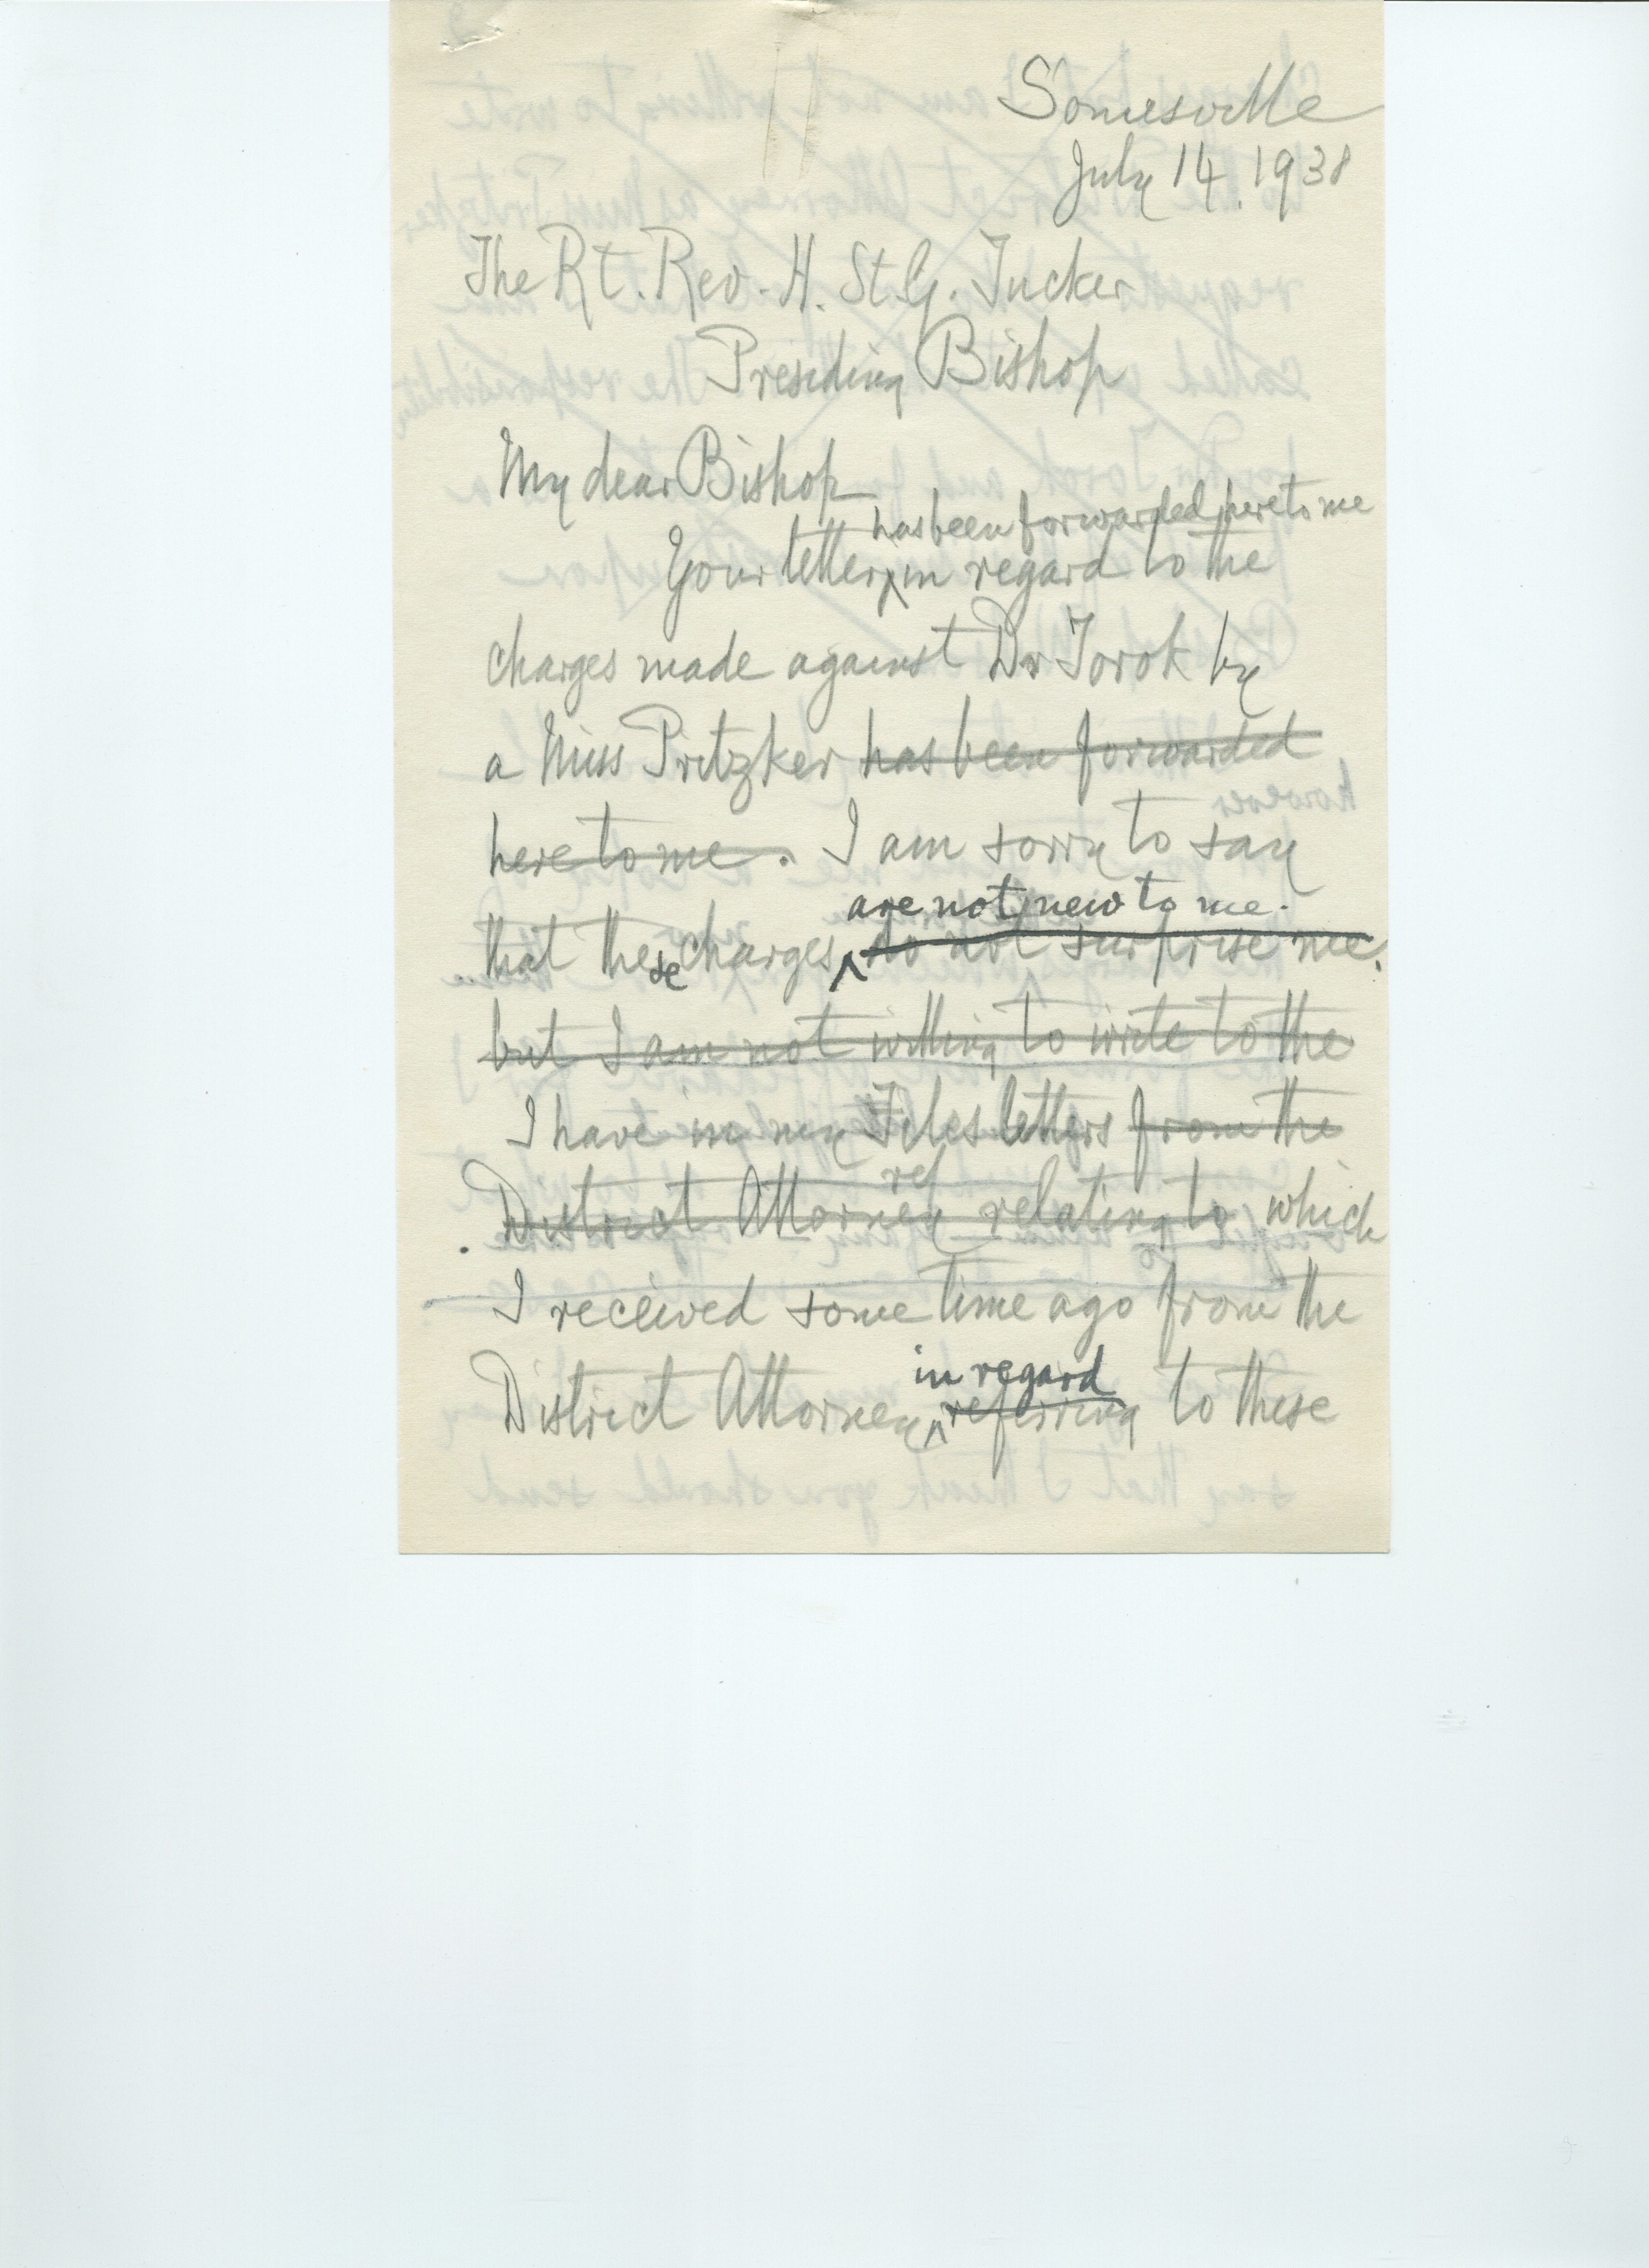 Somesville
July 14. 1938
The Rt. Rev. H. St G. Tucker
Presiding Bishop
My dear Bishop
has been forwarded here to me
Your letter ^ in regard to the
charges made against Dr Torok by
a Miss Pritzker has been forwarded
here to me. I am sorry to say
are not new to me.
that these charges ^ do not surprise me.
but I am not willing to write to the
I have in my Files letters from the
ref
District Attorney relating to which
I received some time ago from the
in regard
District Attorney ^ referring to these